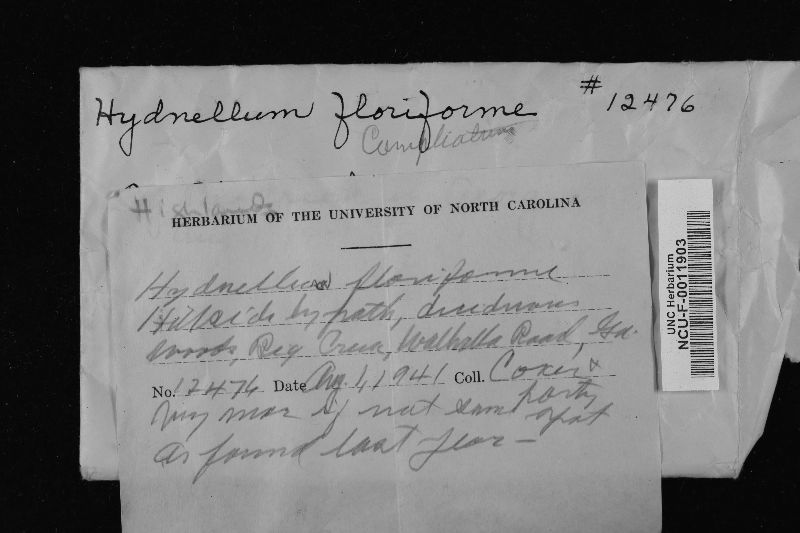 Hydnellum floriforme #12476
Compliatum
Highlands
HERBARIUM OF THE UNIVERSITY OF NORTH CAROLINA
Hydnellum floriforme
Hillside by path, deciduous
woods, Big Creek, Walhalla Road, Ga.
No. 12476 Date Aug. 1, 1941 Coll. Coker &
party
Very near if not same spot
as found last year –
UNC Herbarium
NCU-F-0011903